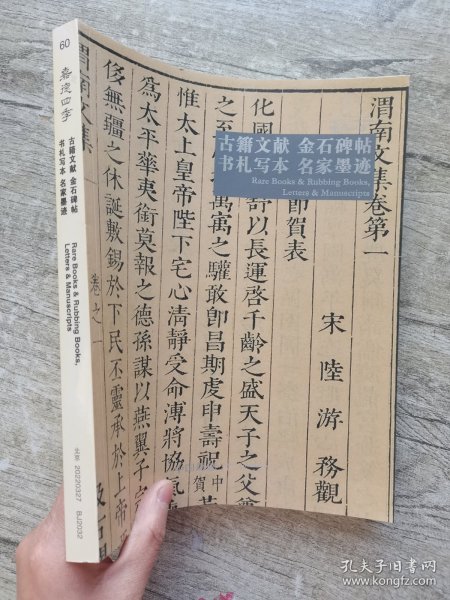 60
嘉德四季
古籍文献 金石碑帖
书札写本 名家墨迹
Rare Books & Rubbing Books,
Letters & Manuscripts
北京 20220327 BJ2032
古籍文献 金石碑帖
书札写本 名家墨迹
Rare Books & Rubbing Books,
Letters & Manuscripts
渭南文集卷第一
宋 陸 游 務觀
節賀表
化國
舒以長運啓千齡之盛天子之父
之至
萬寓之驩敢卽昌期虔申壽祝
中
賀
惟太上皇帝陛下宅心清靜受命溥將協氣
爲太平華夷銜莫報之德孫謀以燕翼子
侈無疆之休誕敷錫於下民丕靈承於上帝
渭南文集
卷之一
孔夫子旧书网
www.kongfz.com